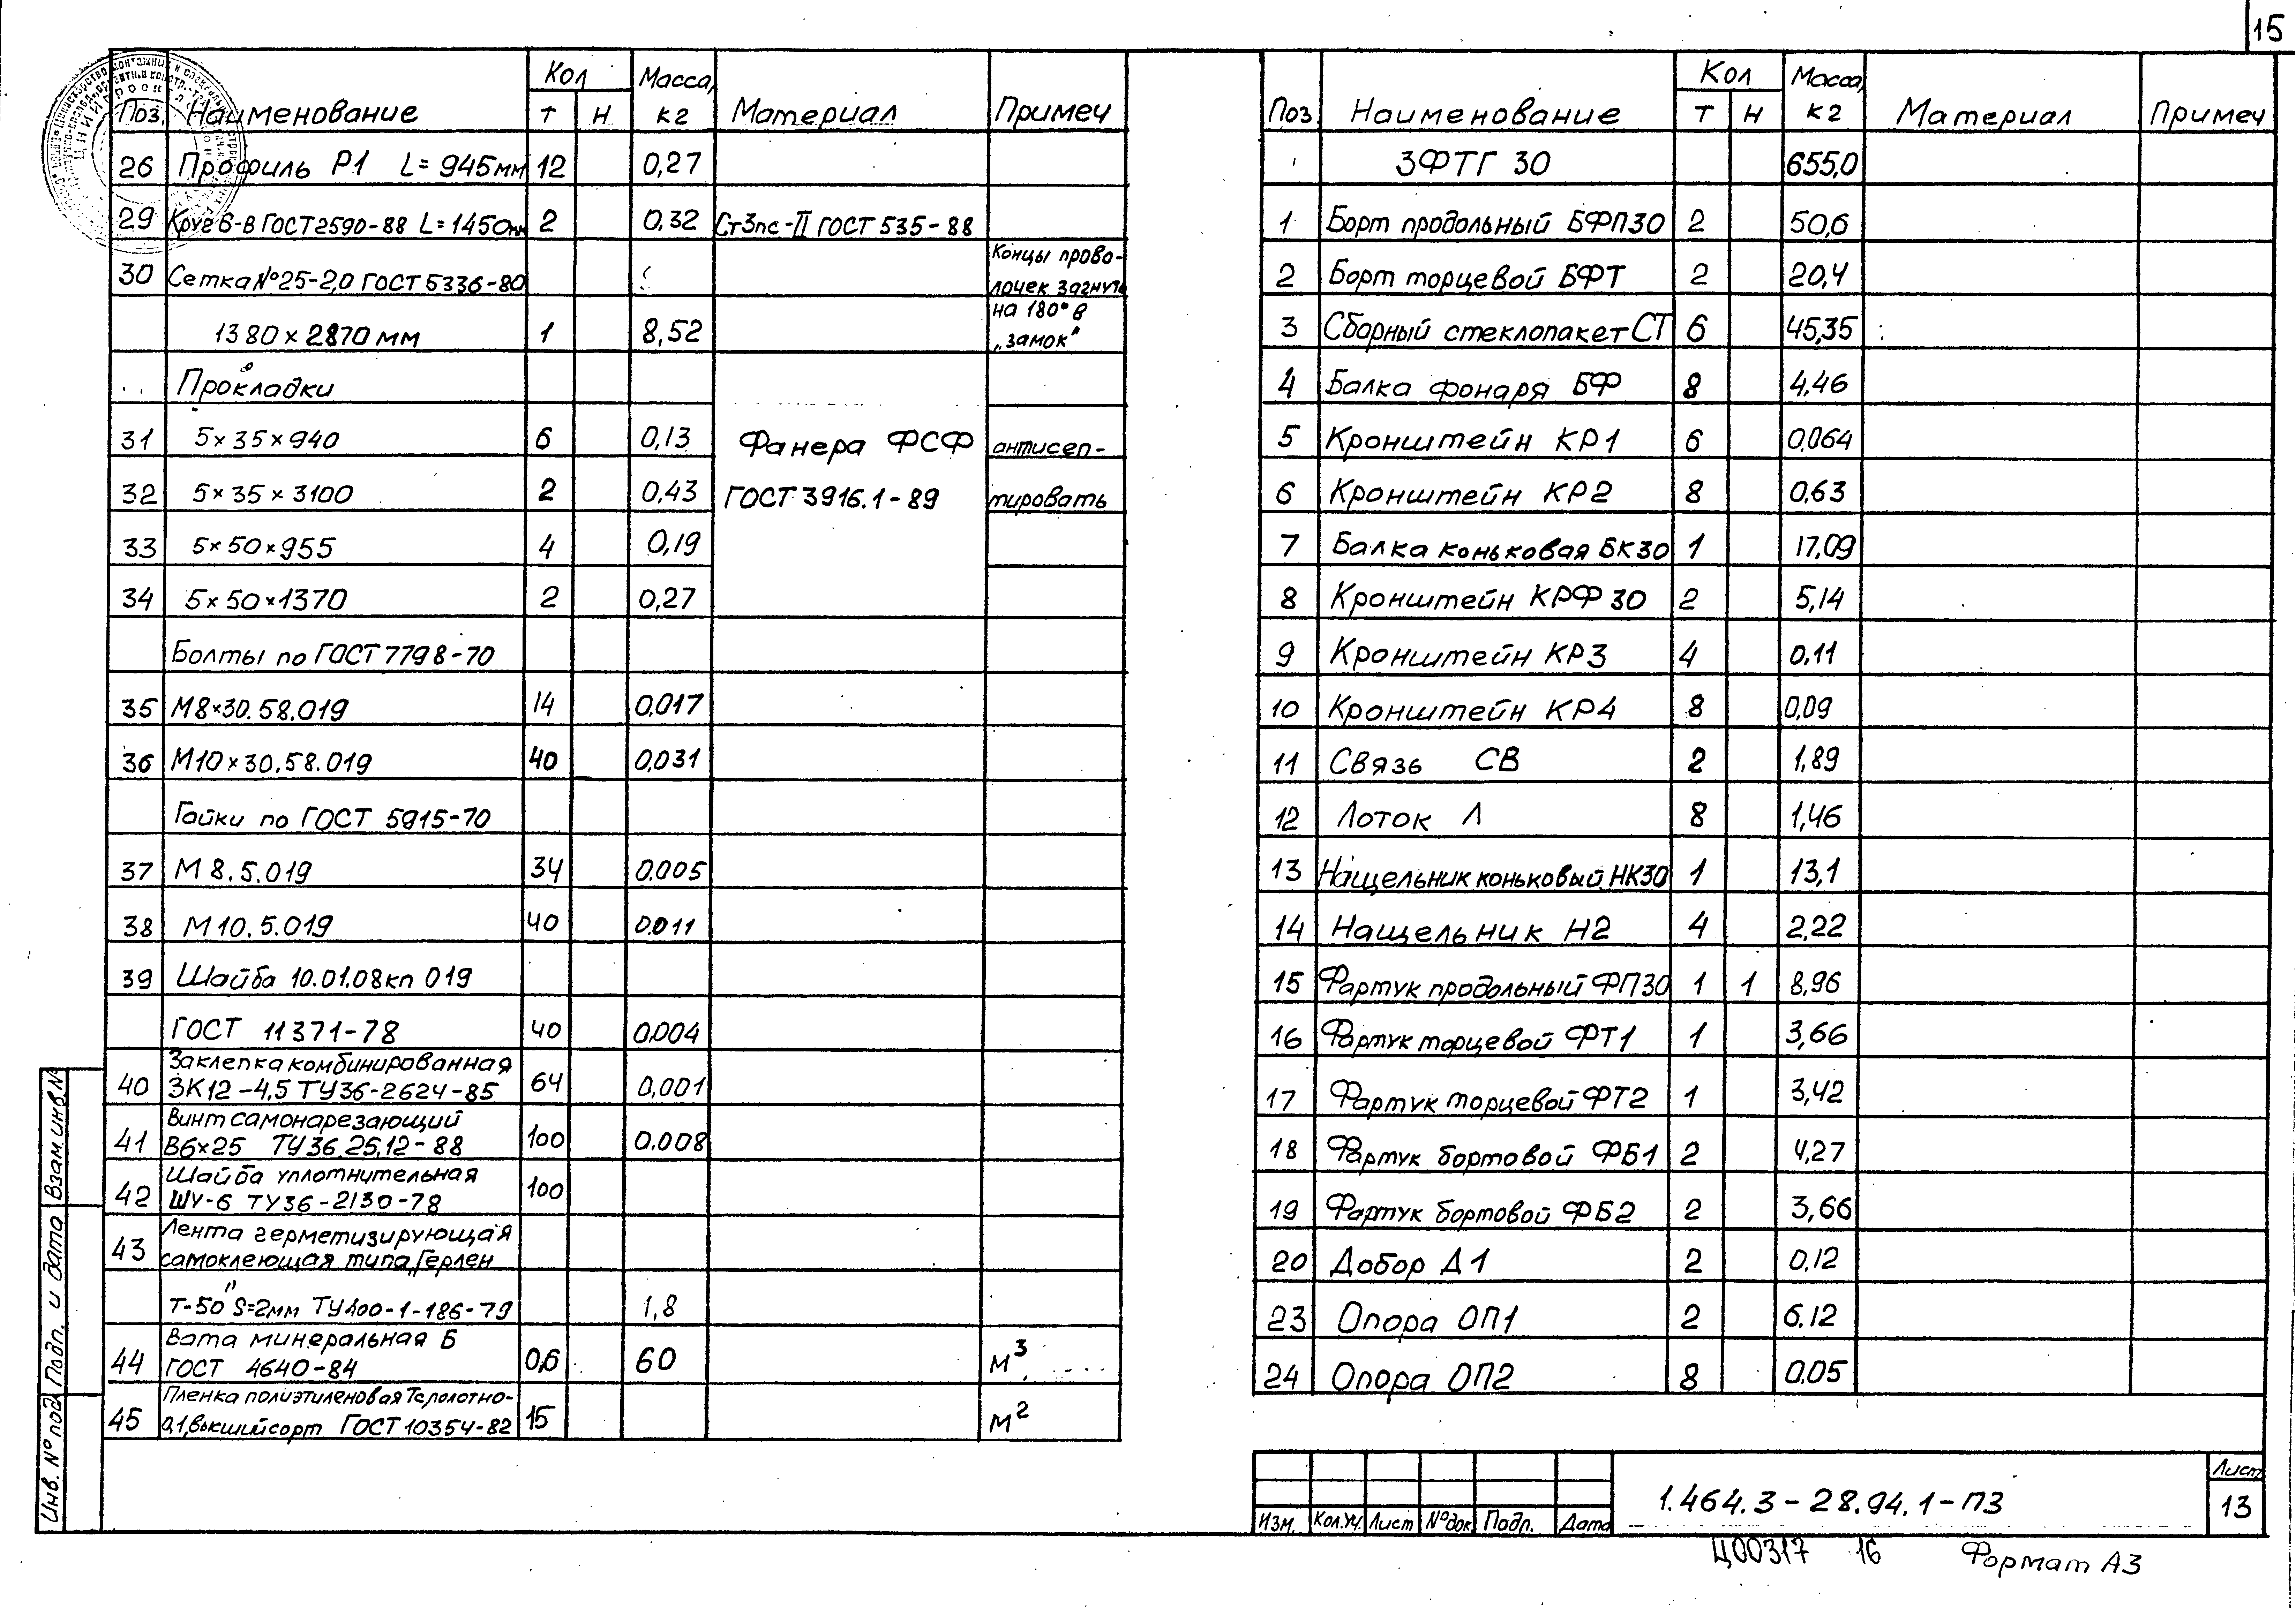 15
Поз. Наименование Кол Т Н Масса, кг Материал Примеч
26 Профиль Р1 L=945мм 12 0,27
29 Круг 6-В ГОСТ 2590-88 L=1450мм 2 0,32 Ст3пс-II ГОСТ 535-88
30 Сетка №25-2,0 ГОСТ 5336-80 Концы прово-
лочек загнуть
1380×2870мм 1 8,52 на 180° в
„замок"
Прокладки
31 5×35×940 6 0,13 Фанера ФСФ антисеп-
32 5×35×3100 2 0,43 ГОСТ 3916.1-89 тировать
33 5×50×955 4 0,19
34 5×50×1370 2 0,27
Болты по ГОСТ 7798-70
35 М8×30.58.019 14 0,017
36 М10×30.58.019 40 0,031
Гайки по ГОСТ 5915-70
37 М8.5.019 34 0,005
38 М10.5.019 40 0.011
39 Шайба 10.01.08кп 019
ГОСТ 11371-78 40 0,004
Заклепка комбинированная
40 ЗК12-4,5 ТУ36-2624-85 64 0,001
Винт самонарезающий
41 В6×25 ТУ36.25.12-88 100 0.008
Шайба уплотнительная
42 ШУ-6 ТУ36-2130-78 100
Лента герметизирующая
43 самоклеющая типа „Герлен
Т-50" S=2мм ТУ400-1-186-79 1,8
Вата минеральная Б
44 ГОСТ 4640-84 0,6 60 м³
Пленка полиэтиленовая Тс,полотно-
45 0,1,высший сорт ГОСТ 10354-82 15 м²
Поз. Наименование Кол Т Н Масса, кг Материал Примеч
ЗФТГ 30 655,0
1 Борт продольный БФП30 2 50,6
2 Борт торцевой БФТ 2 20,4
3 Сборный стеклопакет СТ 6 45,35
4 Балка фонаря БФ 8 4,46
5 Кронштейн КР1 6 0,064
6 Кронштейн КР2 8 0,63
7 Балка коньковая БК30 1 17,09
8 Кронштейн КРФ 30 2 5,14
9 Кронштейн КР3 4 0,11
10 Кронштейн КР4 8 0,09
11 Связь СВ 2 1,89
12 Лоток Л 8 1,46
13 Нащельник коньковый НК30 1 13,1
14 Нащельник Н2 4 2,22
15 Фартук продольный ФП30 1 1 8,96
16 Фартук торцевой ФТ1 1 3,66
17 Фартук торцевой ФТ2 1 3,42
18 Фартук бортовой ФБ1 2 4,27
19 Фартук бортовой ФБ2 2 3,66
20 Добор Д1 2 0,12
23 Опора ОП1 2 6.12
24 Опора ОП2 8 0,05
Взам. инв. №
Подп. и дата
Инв. № подл
Изм. Кол.уч. Лист №док Подп. Дата
1.464.3-28.94.1-ПЗ
Лист
13
Ц00317 16 Формат А3